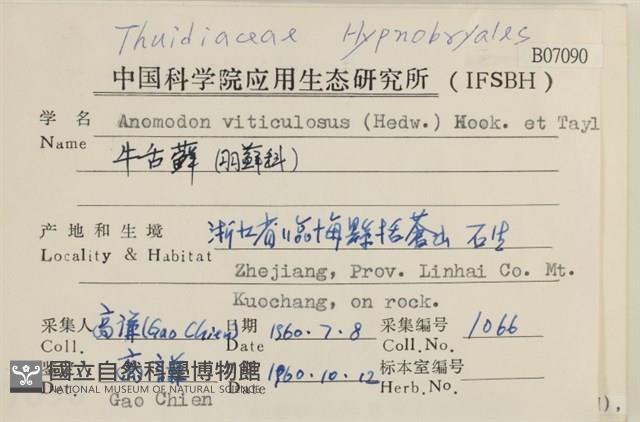 Thuidiaceae Hypnobryales
B07090
中国科学院应用生态研究所 (IFSBH)
学名 Anomodon viticulosus (Hedw.) Hook. et Tayl
Name 牛舌藓 (羽藓科)
产地和生境 浙江省临海縣括蒼山 石生
Locality & Habitat Zhejiang, Prov. Linhai Co. Mt.
Kuochang, on rock.
采集人 高谦(Gao Chien) 日期 1960.7.8 采集编号 1066
Coll. Date Coll.No.
高謙 1960.10.12 标本室编号
國立自然科學博物館
NATIONAL MUSEUM OF NATURAL SCIENCE
Det. Date Herb.No.
Gao Chien
),